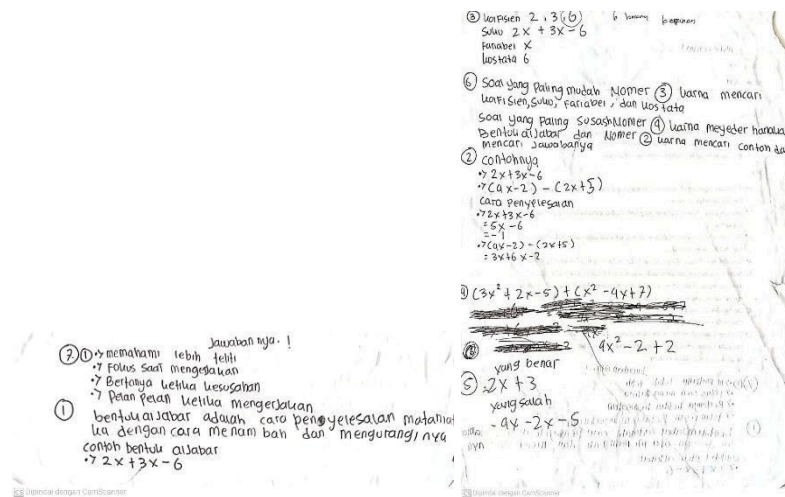 Jawaban nya. !
7. ① •> memahami lebih teliti
•> Fokus saat mengerjakan
•> Bertanya ketika kesusahan
•> Pelan pelan ketika mengerjakan
① bentuk aljabar adalah cara penyelesalan matamat
ka dengan cara menam bah dan mengurangi nya
contoh bentuk aljabar
•> 2x+3x-6
Dipindai dengan CamScanner
③ koifisien 2, 3 (6)
suku 2x + 3x - 6
Fariabel x
kostata 6
⑥ Soal yang paling mudah Nomer ③ karna mencari
koifisien, suku, fariabel, dan kostata
soal yang paling susash Nomer ④ karna meyeder hanaka
Bentuk aljabar dan Nomer ② karna mencari contoh da
mencari jawabanya
② contohnya
•> 2x+3x-6
•> (4x-2) - (2x+5)
cara penyelesaian
•> 2x+3x-6
= 5x - 6
= -1
•> (4x-2) - (2x+5)
= 3x+6 x-2
④ (3x² + 2x - 5) + (x² - 4x + 7)
4x² - 2 + 2
yang benar
⑤ . 2x + 3
yang salah
- 4x - 2x - 5
Dipindai dengan CamScanner